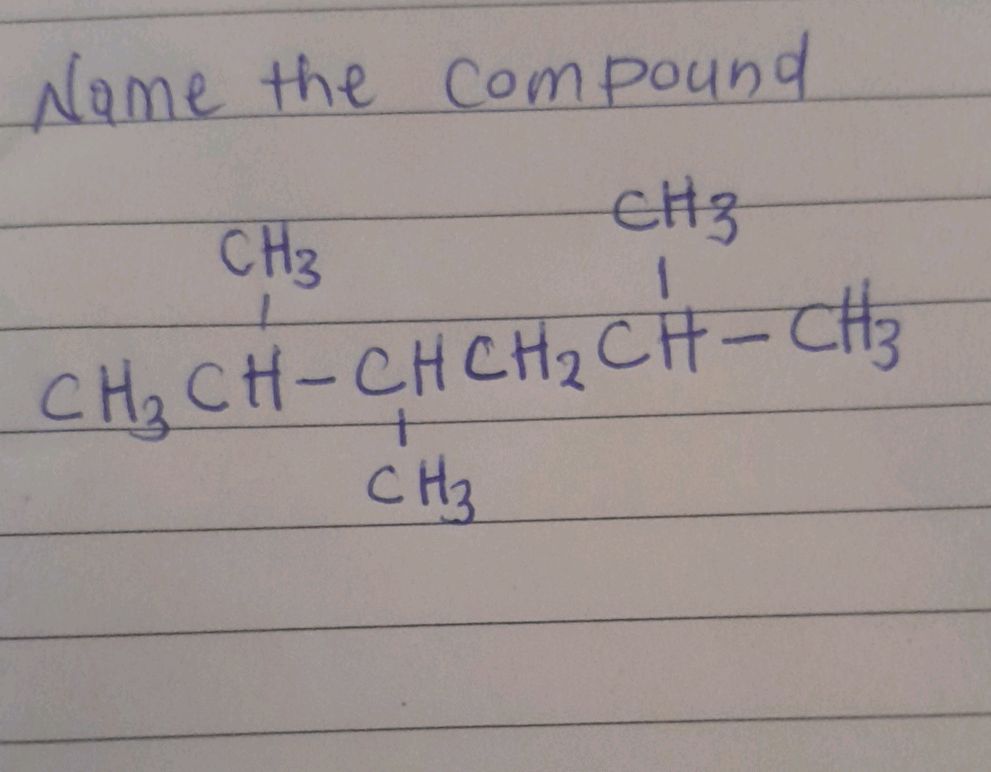 Name the compound
CH3
CH3
CH3 CH - CH CH2 CH - CH3
CH3